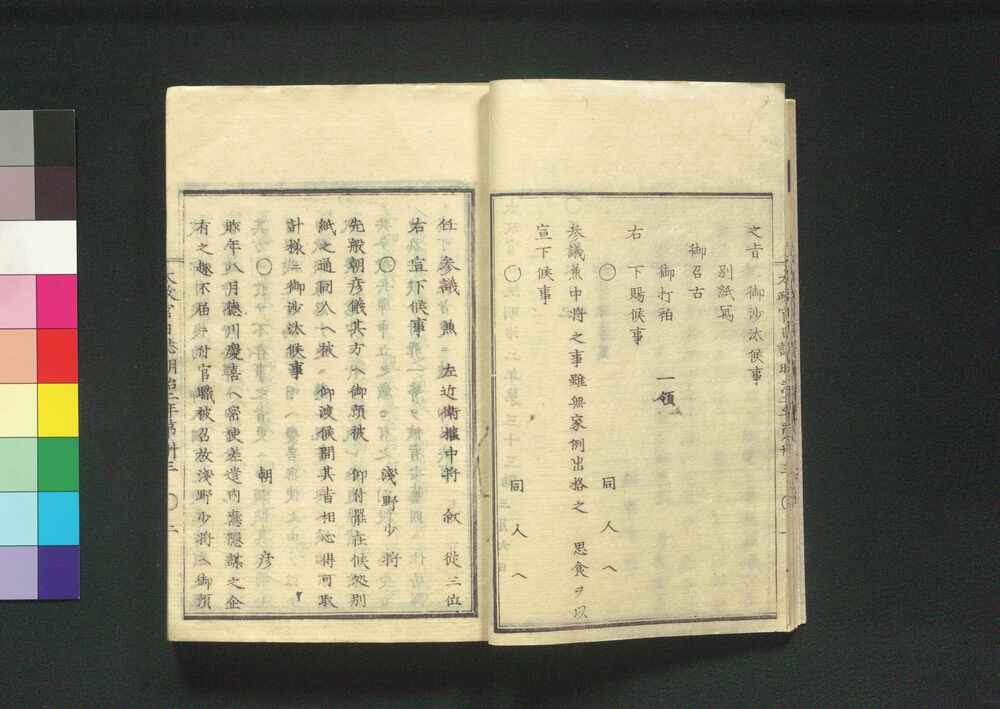 之旨御沙汰候事
別紙寫
御召古
御打袙 一領
右下賜候事
〇 同人ヘ
参議兼中將之事雖無家例出格之思食ヲ以
宣下候事
〇 同人ヘ
任参議兼左近衛権中將叙従三位
右宣下候事
〇 淺野少將
先般朝彦儀其方ヘ御預被仰付置在候処別
紙之通同人ヘ被御渡候間其旨相心得可取
計様御沙汰候事
〇 朝彦
昨年八月徳川慶喜ヘ密使差遣内應隠謀之企
有之趣不届ニ付官職被召放淺野少將ヘ御預
太政官日誌明治二年第卅三 〇二